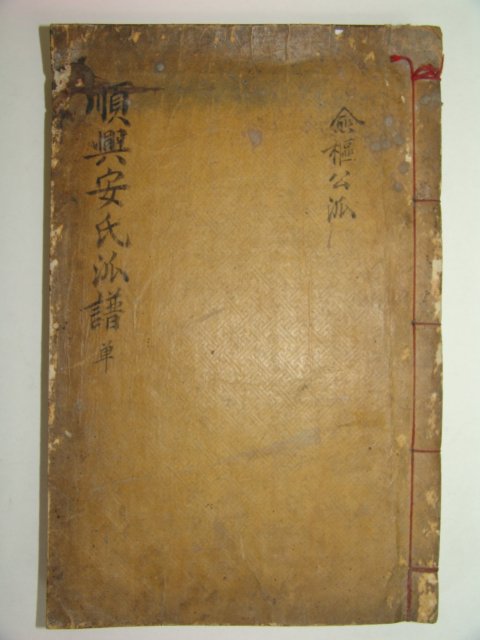 順興安氏派譜 单
僉樞公派